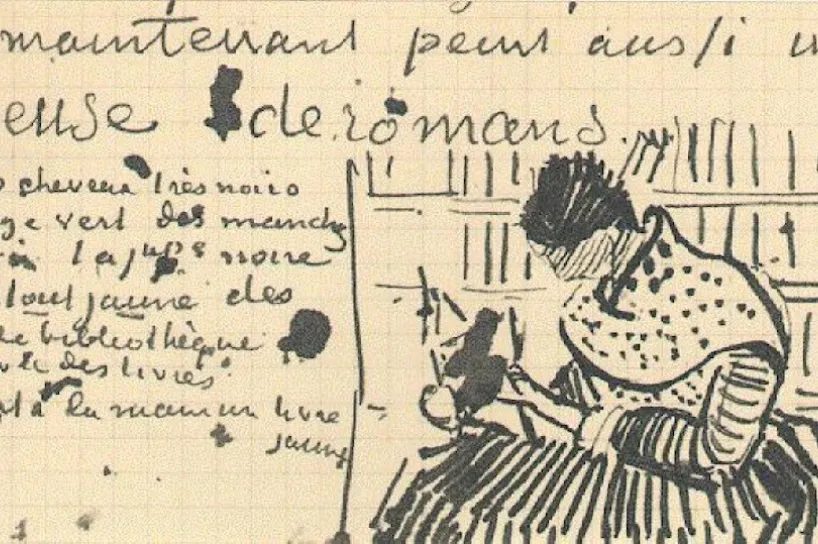 maintenant peint aussi u
euse de romans.
cheveux très noirs
ge vert des manch
la jupe noire
tout jaune des
bibliothèque
des livres
à la main un livre
jaune